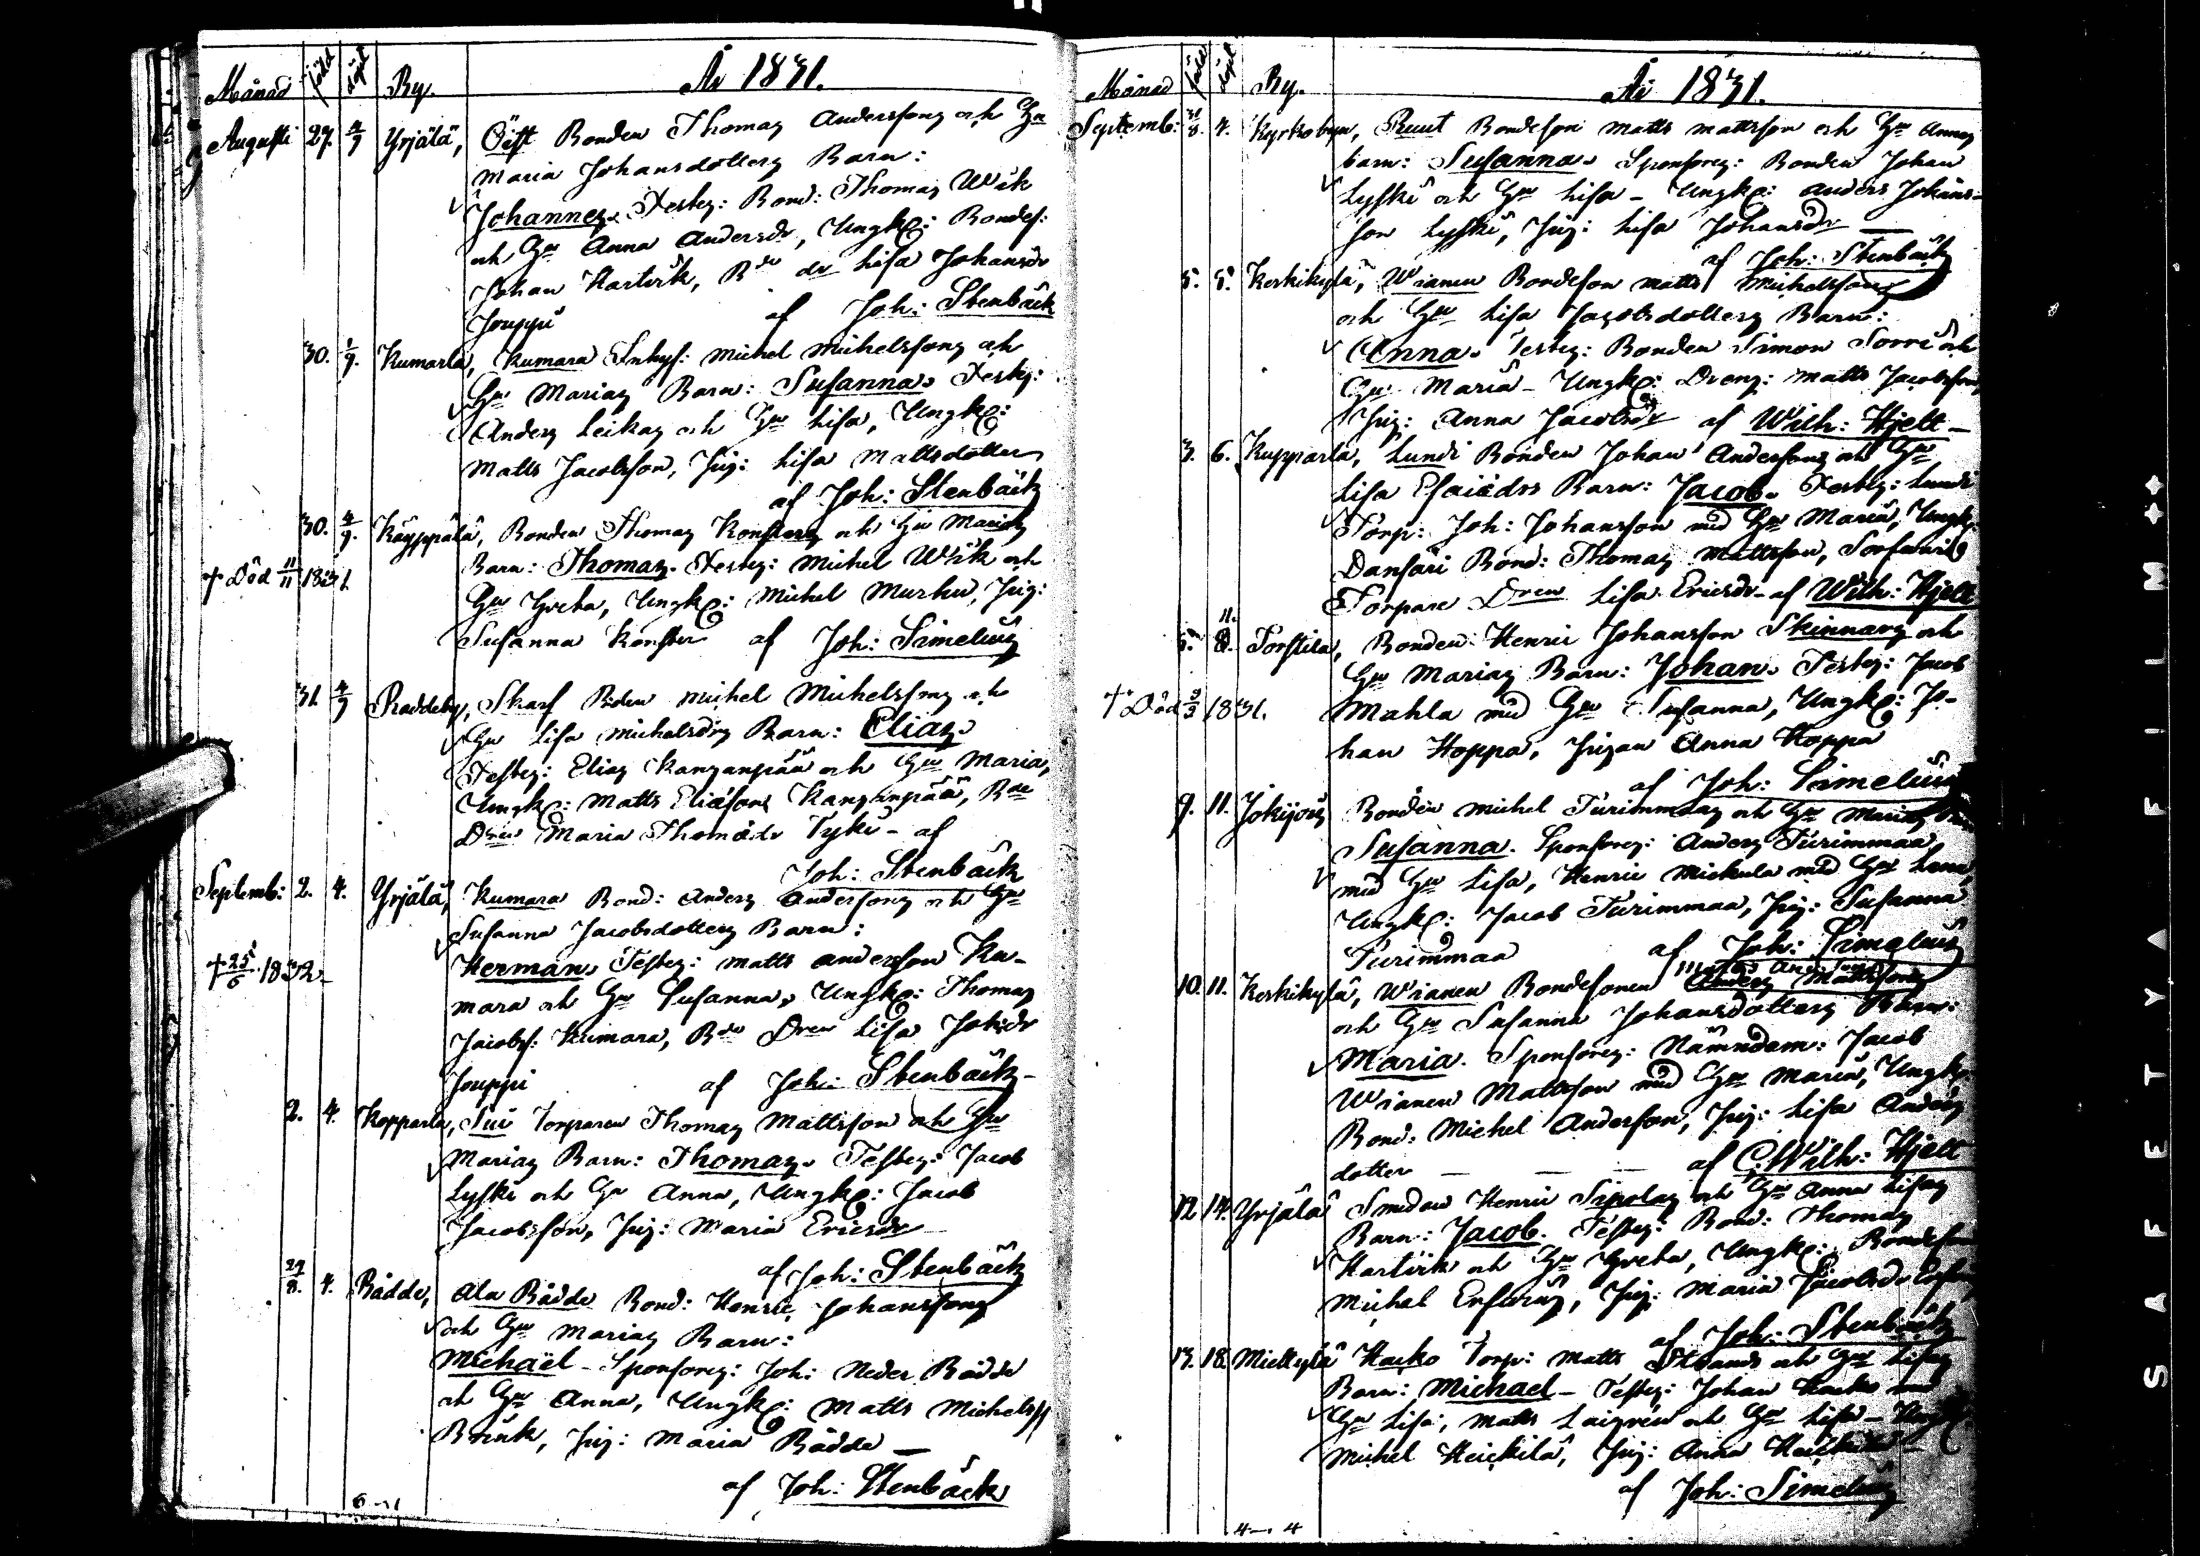 År 1831.
Månad född döpt By.
Augusti 27. 4/9 Yrjälä, Öist Bonden Thomas Anderssons och Hu
Maria Johansdotters Barn:
Johannes. Testes: Bond: Thomas Wik
och Hu Anna Andersdr, Ungk: Bondes:
Johan Hartvik, Bde dr Lisa Johansdr
Jouppi af Joh: Stenbäck
30. 1/9. Kumarla, Kumara Inhys: Michel Michelssons och
Hu Marias Barn: Susanna. Testes:
Anders Leikas och Hu Lisa, Ungk:
Matts Jacobsson, Pig: Lisa Mattsdotter
af Joh: Stenbäck
30. 4/9. Käyppälä, Bonden Thomas Konsters och Hu Marias
Barn: Thomas. Testes: Michel Wik och
† Död 11/11 1831.
Hu Greta, Ungk: Michel Murku, Pig:
Susanna Konster af Joh: Simelius
31. 4/9 Raddeby, Skarf Bden Michel Michelssons och
Hu Lisa Michelsdrs Barn: Elias.
Testes: Elias Kanganpää och Hu Maria,
Ungk: Matts Eliasson Kanganpää, Bde
Dren Maria Thomädr Tyki - af
Joh: Stenbäck
Septemb: 2. 4. Yrjälä, Kumara Bond: Anders Anderssons och Hu
Susanna Jacobsdotters Barn:
† 25/6 1832.
Herman. Testes: Matts Andersson Ku-
mara och Hu Susanna, Ungk: Thomas
Jacobs: Kumara, Bde Dren Lisa Johsdr
Jouppi af Joh: Stenbäck
2. 4. Kopparla, Sui Torparen Thomas Mattsson och Hu
Marias Barn: Thomas. Testes: Jacob
Lyski och Hu Anna, Ungk: Jacob
Jacobsson, Pig: Maria Ericsdr
af Joh: Stenbäck
29/8. 4. Rådde, Ala Rådde Bond: Henric Johanssons
och Hu Marias Barn:
Michaël - Sponsores: Joh: Neder Rådde
och Hu Anna, Ungk: Matts Michelss
Brink, Pig: Maria Rådde
af Joh: Stenbäck
År 1831.
Månad född döpt By.
Septemb: 31/8. 4. Kyrkobyn, Ruut Bondeson Matts Mattsson och Hu Annas
barn: Susanna. Sponsores: Bonden Johan
Lyski och Hu Lisa - Ungk: Anders Johans-
son Lyski, Pig: Lisa Johansdr
af Joh: Stenbäck
5. 5. Keskikylä, Wianen Bondeson Matts Michelssons
och Hu Lisa Jacobsdotters Barn:
Anna. Testes: Bonden Simon Sorri och
Hu Maria - Ungk: Dreng: Matts Jacobsson,
Pig: Anna Jacobsdr af Wilh: Hjelt -
3. 6. Kupparla, Lundi Bonden Johan Anderssons och Hu
Lisa Esaiädrs Barn: Jacob. Testes: Lundi
Torp: Joh: Johansson med Hu Maria, Ungk:
Dansari Bond: Thomas Mattsson,
Torpare Dren Lisa Ericsdr - af Wilh: Hjelt
5. 11. Torstila, Bonden Henric Johansson Skinnars och
Hu Marias Barn: Johan. Testes: Jacob
† Död 1831.
Mahla med Hu Susanna, Ungk: Jo-
han Hoppa, Pigan Anna Hoppa
af Joh: Simelius
9. 11. Jokipois Bonden Michel Turimmaas och Hu Marias Barn
Susanna. Sponsores: Anders Turimmaa
med Hu Lisa, Henric Mickula med Hu Lena,
Ungk: Jacob Turimmaa, Pig: Susanna
Turimmaa af Joh: Simelius
10. 11. Keskikylä, Wianen Bondesonen Anders Mattssons
och Hu Susanna Johansdotters Barn:
Maria. Sponsores: Nämndem: Jacob
Wianen Mattsson med Hu Maria, Ungk:
Bond: Michel Andersson, Pig: Lisa Anders
dotter af C: Wilh: Hjelt
12 14. Yrjälä Smeden Henric Sipolas och Hu Anna Lisas
Barn: Jacob. Testes: Bond: Thomas
Hartvik och Hu Greta, Ungk: Bondeson
Michel, Pig: Maria Jacobsdr
af Joh: Stenbäck
17. 18. Mieltylä Hacko Torp: Matts Strands och Hu Lisas
Barn: Michael - Testes: Johan Hacko med
Hu Lisa, Matts Laigren och Hu Lisa - Ungk:
Michel Heickilä, Pig: Anna Heickilä -
af Joh: Simelius
4 — 4
SAFETY▲FILM